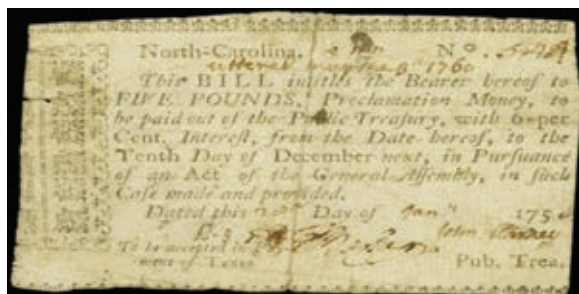 North-Carolina. No.
uttered 1760
This BILL intitles the Bearer hereof to
FIVE POUNDS, Proclamation Money, to
be paid out of the Public Treasury, with 6 per
Cent. Interest, from the Date hereof, to the
Tenth Day of December next, in Pursuance
of an Act of the General Assembly, in such
Case made and provided.
Dated this Day of Jan 175
John
To be accepted in
ment of Taxes Pub. Trea.